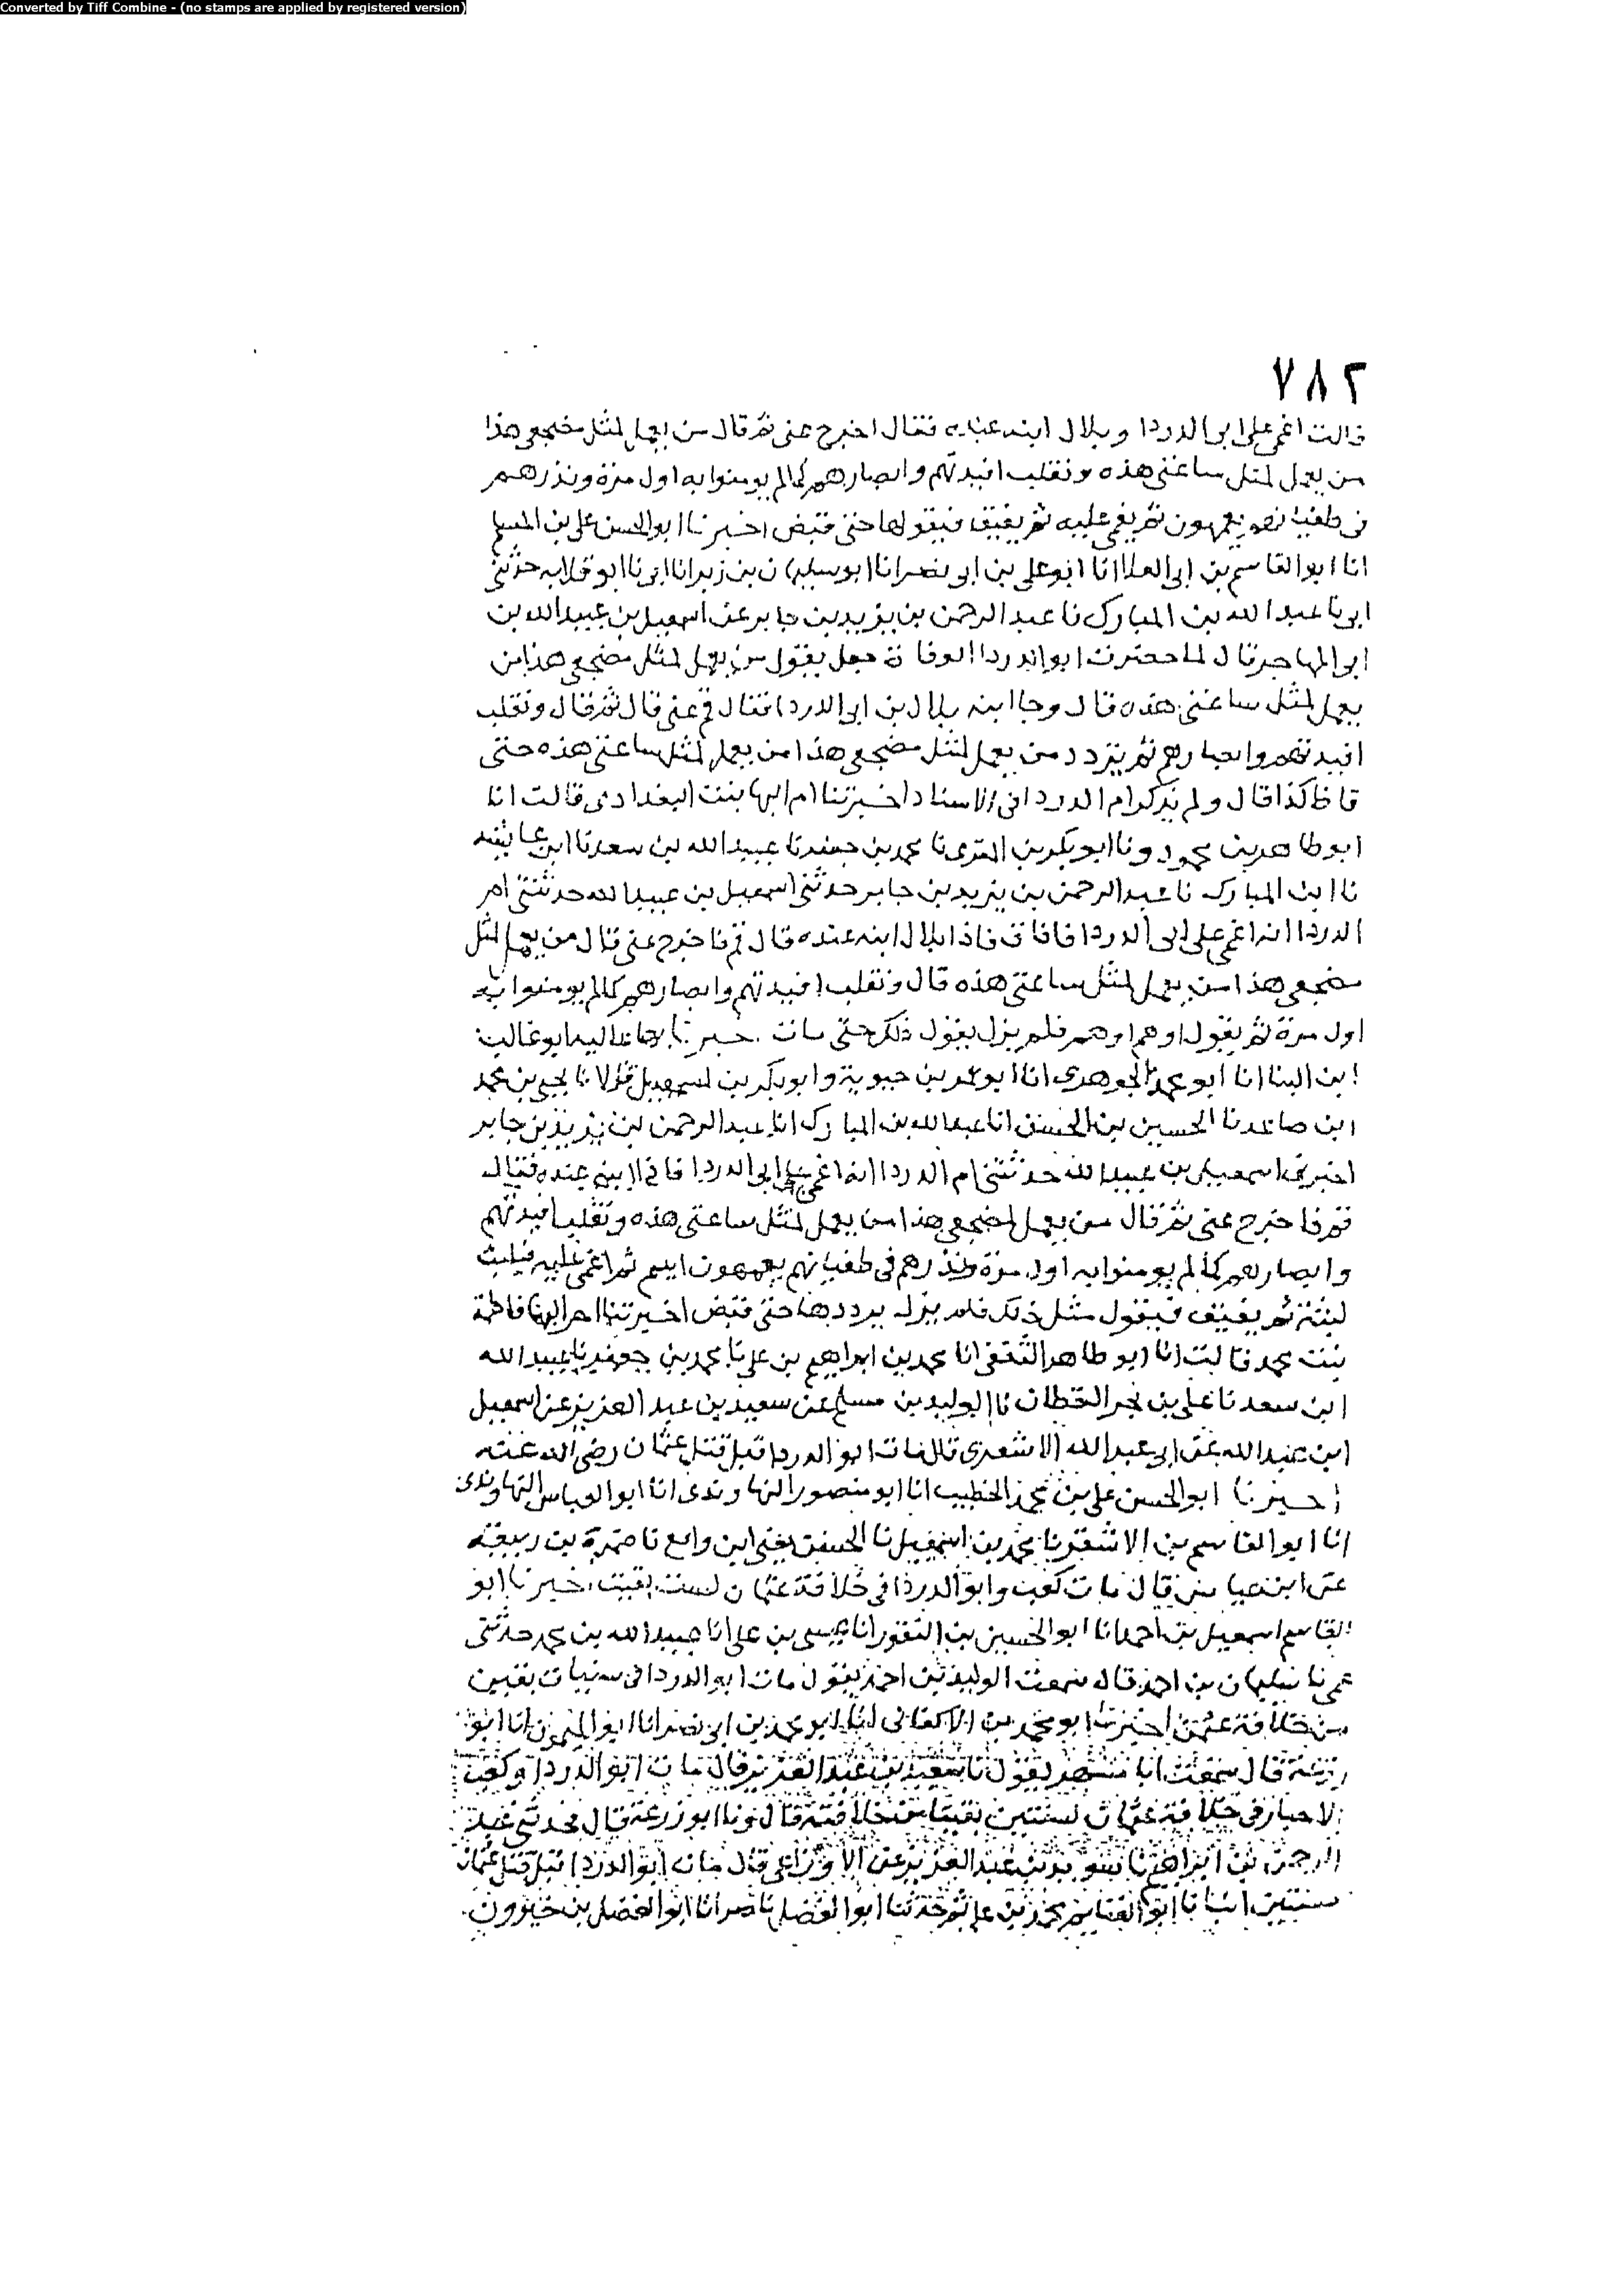 Converted by Tiff Combine - (no stamps are applied by registered version)
٧٨٢
قالت اغمي على ابو الدردا وبلال ابنه عنده فقال اخرج عني ثم قال من يعمل لمثل مضجعي هذا
من يعمل لمثل ساعتي هذه ونقلب افيدتهم وابصارهم كما لم يومنوا به اول مرة ونذرهم
في طغيانهم يعمهون ثم يغمى عليه ثم يفيق فيقولها حتى قبض اخبرنا ابو الحسن علي بن المسلم
انا ابو القاسم بن ابي العلا انا ابو علي بن ابي نصر انا ابو سليمان بن زبر انا ابي نا ابو قلابه حدثني
ابي نا عبد الله بن المبارك نا عبد الرحمن بن يزيد بن جابر عن اسمعيل بن عبيد الله بن
ابي المهاجر قال لما حضرت ابو الدردا الوفاة جعل يقول من يعمل لمثل مضجعي هذا من
يعمل لمثل ساعتي هذه قال وجا ابنه بلال بن ابي الدردا فقال قم عني قال ثم قال ونقلب
افيدتهم وابصارهم ثم يردد من يعمل لمثل مضجعي هذا من يعمل لمثل ساعتي هذه حتى
قاظ كذا قال ولم يذكر ام الدردا في الاسناد اخبرتنا ام البها بنت البغدادي قالت انا
ابو طاهر بن محمود ونا ابو بكر بن المقري نا محمد بن جعفر نا عبيد الله بن سعد نا ابن عايشه
نا ابن المبارك نا عبد الرحمن بن يزيد بن جابر حدثني اسمعيل بن عبيد الله حدثتني ام
الدردا انه اغمي على ابي الدردا فافاق فاذا بلال ابنه عنده قال قم فاخرج عني قال من يعمل لمثل
مضجعي هذا من يعمل لمثل ساعتي هذه قال ونقلب افيدتهم وابصارهم كما لم يومنوا به
اول مرة ثم يقول فلم يزل يقول ذلك حتى مات ابو غالب
ابن البنا انا ابو محمد الجوهري انا ابو عمر بن حيوية وابو بكر بن اسمعيل قالا نا يحيى بن محمد
ابن صاعد نا الحسين بن الحسن انا عبد الله بن المبارك انا عبد الرحمن بن يزيد بن جابر
اخبرني اسمعيل بن عبيد الله حدثتني ام الدردا انه اغمي على ابي الدردا ابنه عنده فقال
قم فاخرج عني ثم قال من يعمل لمضجعي هذا من يعمل لمثل ساعتي هذه ونقلب افيدتهم
وابصارهم كما لم يومنوا به اول مرة ونذرهم في طغيانهم يعمهون ثم اغمي عليه فيلبث
لبثة ثم يفيق فيقول مثل ذلك فلم يزل يرددها حتى قبض اخبرتنا ام البها فاطمة
بنت محمد قالت انا ابو طاهر الثقفي انا محمد بن ابراهيم بن علي نا محمد بن جعفر نا عبيد الله
ابن سعد نا علي بن بحر القطان نا الوليد بن مسلم عن سعيد بن عبد العزيز عن اسمعيل
ابن عبيد الله عن ابي عبد الله الاشعري قال مات ابو الدردا قبل قتل عثمان رضي الله عنه
اخبرنا ابو الحسن علي بن محمد الخطيب انا ابو منصور النهاوندي انا ابو العباس النهاوندي
انا ابو القاسم بن الاشقر نا محمد بن اسمعيل نا الحسن يعني ابن واقع نا ضمرة بن ربيعة
عن ابن عياش قال مات كعب وابو الدردا في خلافة عثمان لسنتين بقيت اخبرنا ابو
القاسم اسمعيل بن احمد انا ابو الحسين بن النقور انا عيسى بن علي انا عبيد الله بن محمد حدثني
عمي نا سليمان بن احمد قال سمعت الوليد بن احمد يقول مات ابو الدردا في سنتين بقين
من خلافة عثمن اخبرنا ابو محمد بن الاكفاني انا ابو محمد بن ابي نصر انا ابو الميمون انا ابو
زرعة قال سمعت ابا مسهر يقول نا سعيد بن عبد العزيز قال مات ابو الدردا وكعب
الاحبار في خلافة عثمان لسنتين بقيتا من خلافته قال ونا ابو زرعة قال فحدثني عبد
الرحمن بن ابراهيم نا سويد بن عبد العزيز عن الاوزاعي قال مات ابو الدردا قبل قتل عثمان
بسنتين انبانا ابو الغنايم محمد بن علي ثم حدثنا ابو الفضل بن ناصر انا ابو الفضل بن خيرون